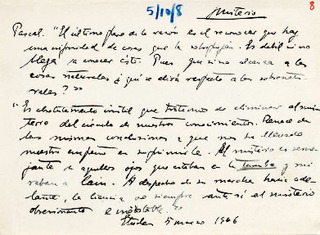 5/10/8
Misterio
8
Pascal. "El último paso de la razón es el reconocer que hay
una infinidad de cosas que la sobrepujan. Es débil si no
llega a conocer esto. Pues que si no alcanza a las
cosas naturales ¿qué se dirá respecto a las sobrenatu-
rales?"
"Es absolutamente inútil que tratemos de eliminar al mis-
terio del círculo de nuestros conocimientos. Renace de
las mismas conclusiones a que nos ha llevado
nuestro empeño en suprimirle. El misterio es seme-
jante a aquellos ojos que estaban en la tumba y mi-
raban a Caín. A despecho de su marcha hacia ade-
lante, la ciencia ve siempre ante sí el misterio
5 marzo 1906